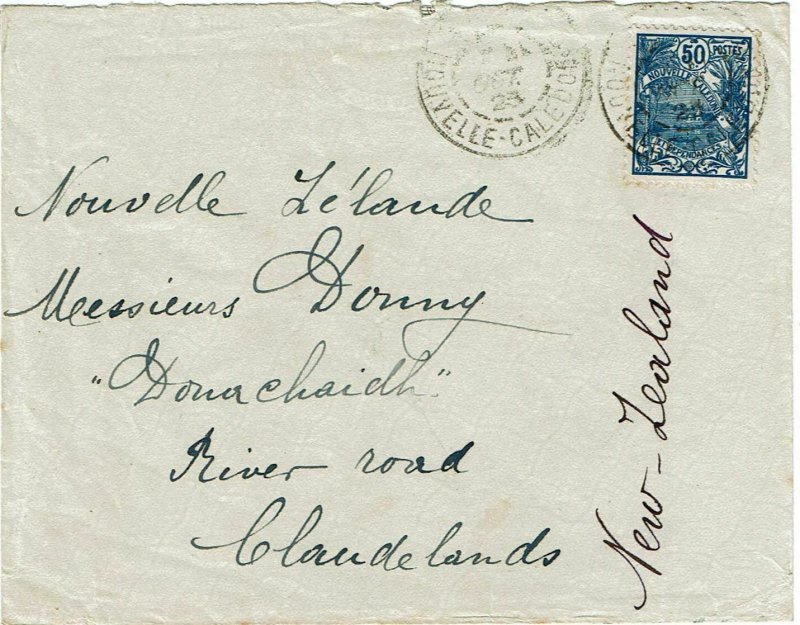 NOUVELLE-CALEDONIE
50 POSTES
NOUVELLE CALEDONIE
ET DEPENDANCES
Nouvelle Zélande
Messieurs Donny
"Donachaidh"
River road
Claudelands
New-Zealand